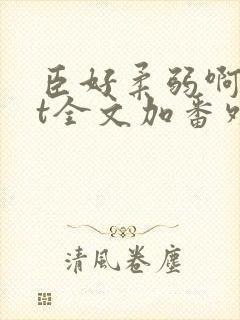 臣好柔弱啊
t全文加番
清風卷塵